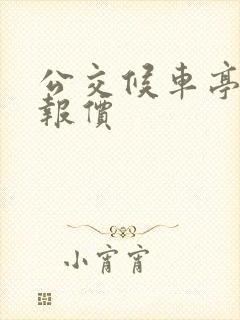 公交候車亭
報價
小宵宵